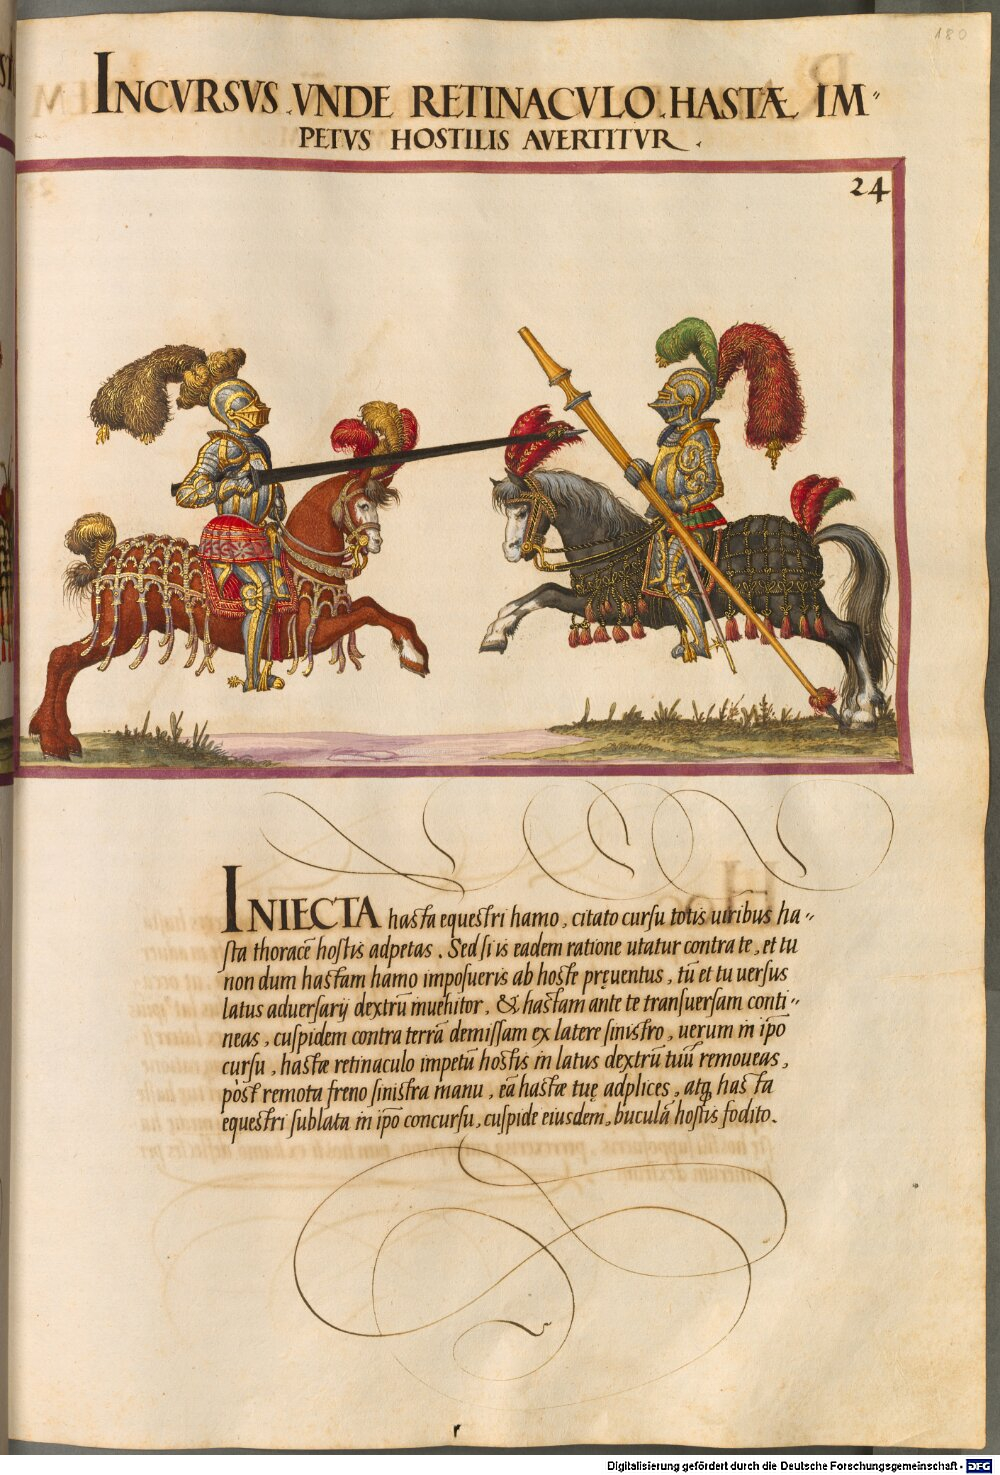 180
INCVRSVS VNDE RETINACVLO HASTÆ IM„
PETVS HOSTILIS AVERTITVR.
24
INIECTA hasta equestri hamo, citato cursu totis uiribus ha„
sta thoracē hostis adpetas. Sed si is eadem ratione utatur contra te, et tu
non dum hastam hamo imposueris ab hoste pręuentus, tū et tu uersus
latus aduersarij dextrū inuehitor, & hastam ante te transuersam conti„
neas, cuspidem contra terrā demissam ex latere sinistro, uerum in ipō
cursu, hastæ retinaculo impetū hostis in latus dextrū tuū remoueas,
pòst remota freno sinistra manu, eā hastæ tuę adplices, atq hasta
equestri sublata in ipō concursu, cuspide eiusdem, buculā hostis fodito.
Digitalisierung gefördert durch die Deutsche Forschungsgemeinschaft - DFG